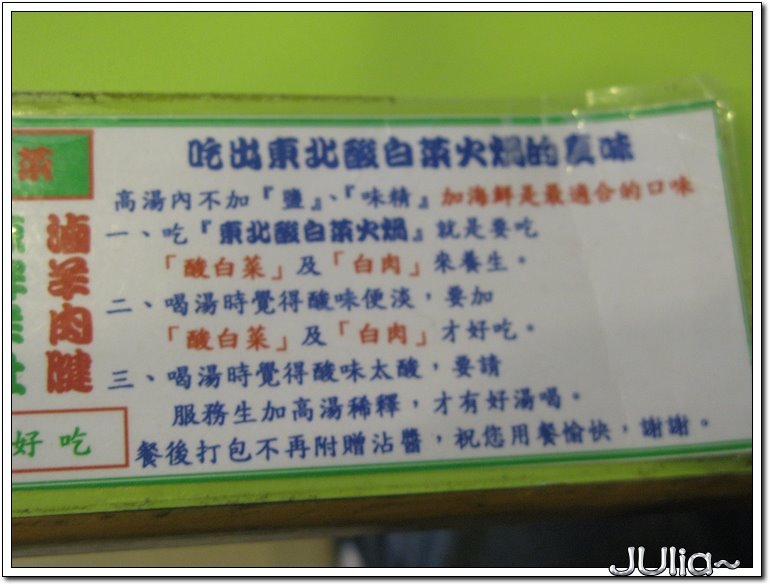 吃出東北酸白菜火鍋的真味
高湯內不加『鹽』、『味精』加海鮮是最適合的口味
一、吃『東北酸白菜火鍋』就是要吃
「酸白菜」及「白肉」來養生。
二、喝湯時覺得酸味便淡，要加
「酸白菜」及「白肉」才好吃。
三、喝湯時覺得酸味太酸，要請
服務生加高湯稀釋，才有好湯喝。
餐後打包不再附贈沾醬，祝您用餐愉快，謝謝。
菜
滷羊肉腱
好吃
JUlia~